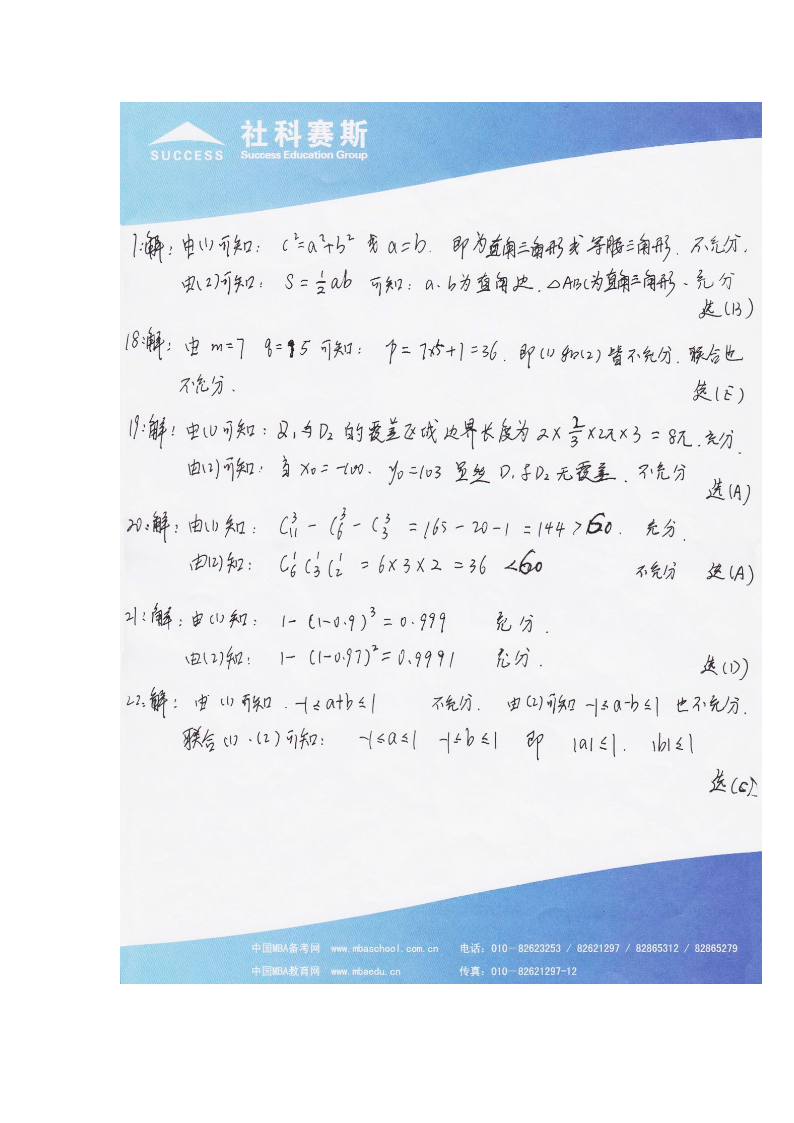 社科赛斯
SUCCESS
Success Education Group
17:解: 由(1)可知: c²=a²+b² 或 a=b. 即为直角三角形或等腰三角形. 不充分.
由(2)可知: S=½ab 可知: a、b为直角边. △ABC为直角三角形、充分
选(B)
18:解: 由 m=7 q=5 可知: p=7×5+1=36. 即(1)和(2)皆不充分. 联合也
不充分.
选(E)
19:解: 由(1)可知: D₁与D₂的覆盖区域边界长度为 2×2/3×2π×3=8π. 充分.
由(2)可知: 当 x₀=-100. y₀=103 显然 D₁与D₂无覆盖. 不充分
选(A)
20:解: 由(1)知: C₁₁³-C₆³-C₃³=165-20-1=144>60. 充分.
由(2)知: C₆¹C₃¹C₂¹=6×3×2=36<60 不充分 选(A)
21:解: 由(1)知: 1-(1-0.9)³=0.999 充分.
由(2)知: 1-(1-0.97)²=0.9991 充分.
选(D)
22:解: 由(1)可知. -1≤a+b≤1 不充分. 由(2)可知 -1≤a-b≤1 也不充分.
联合(1)、(2)可知: -1≤a≤1 -1≤b≤1 即 |a|≤1. |b|≤1
选(C)
中国MBA备考网 www.mbaschool.com.cn 电话: 010-82623253 / 82621297 / 82865312 / 82865279
中国MBA教育网 www.mbaedu.cn 传真: 010-82621297-12